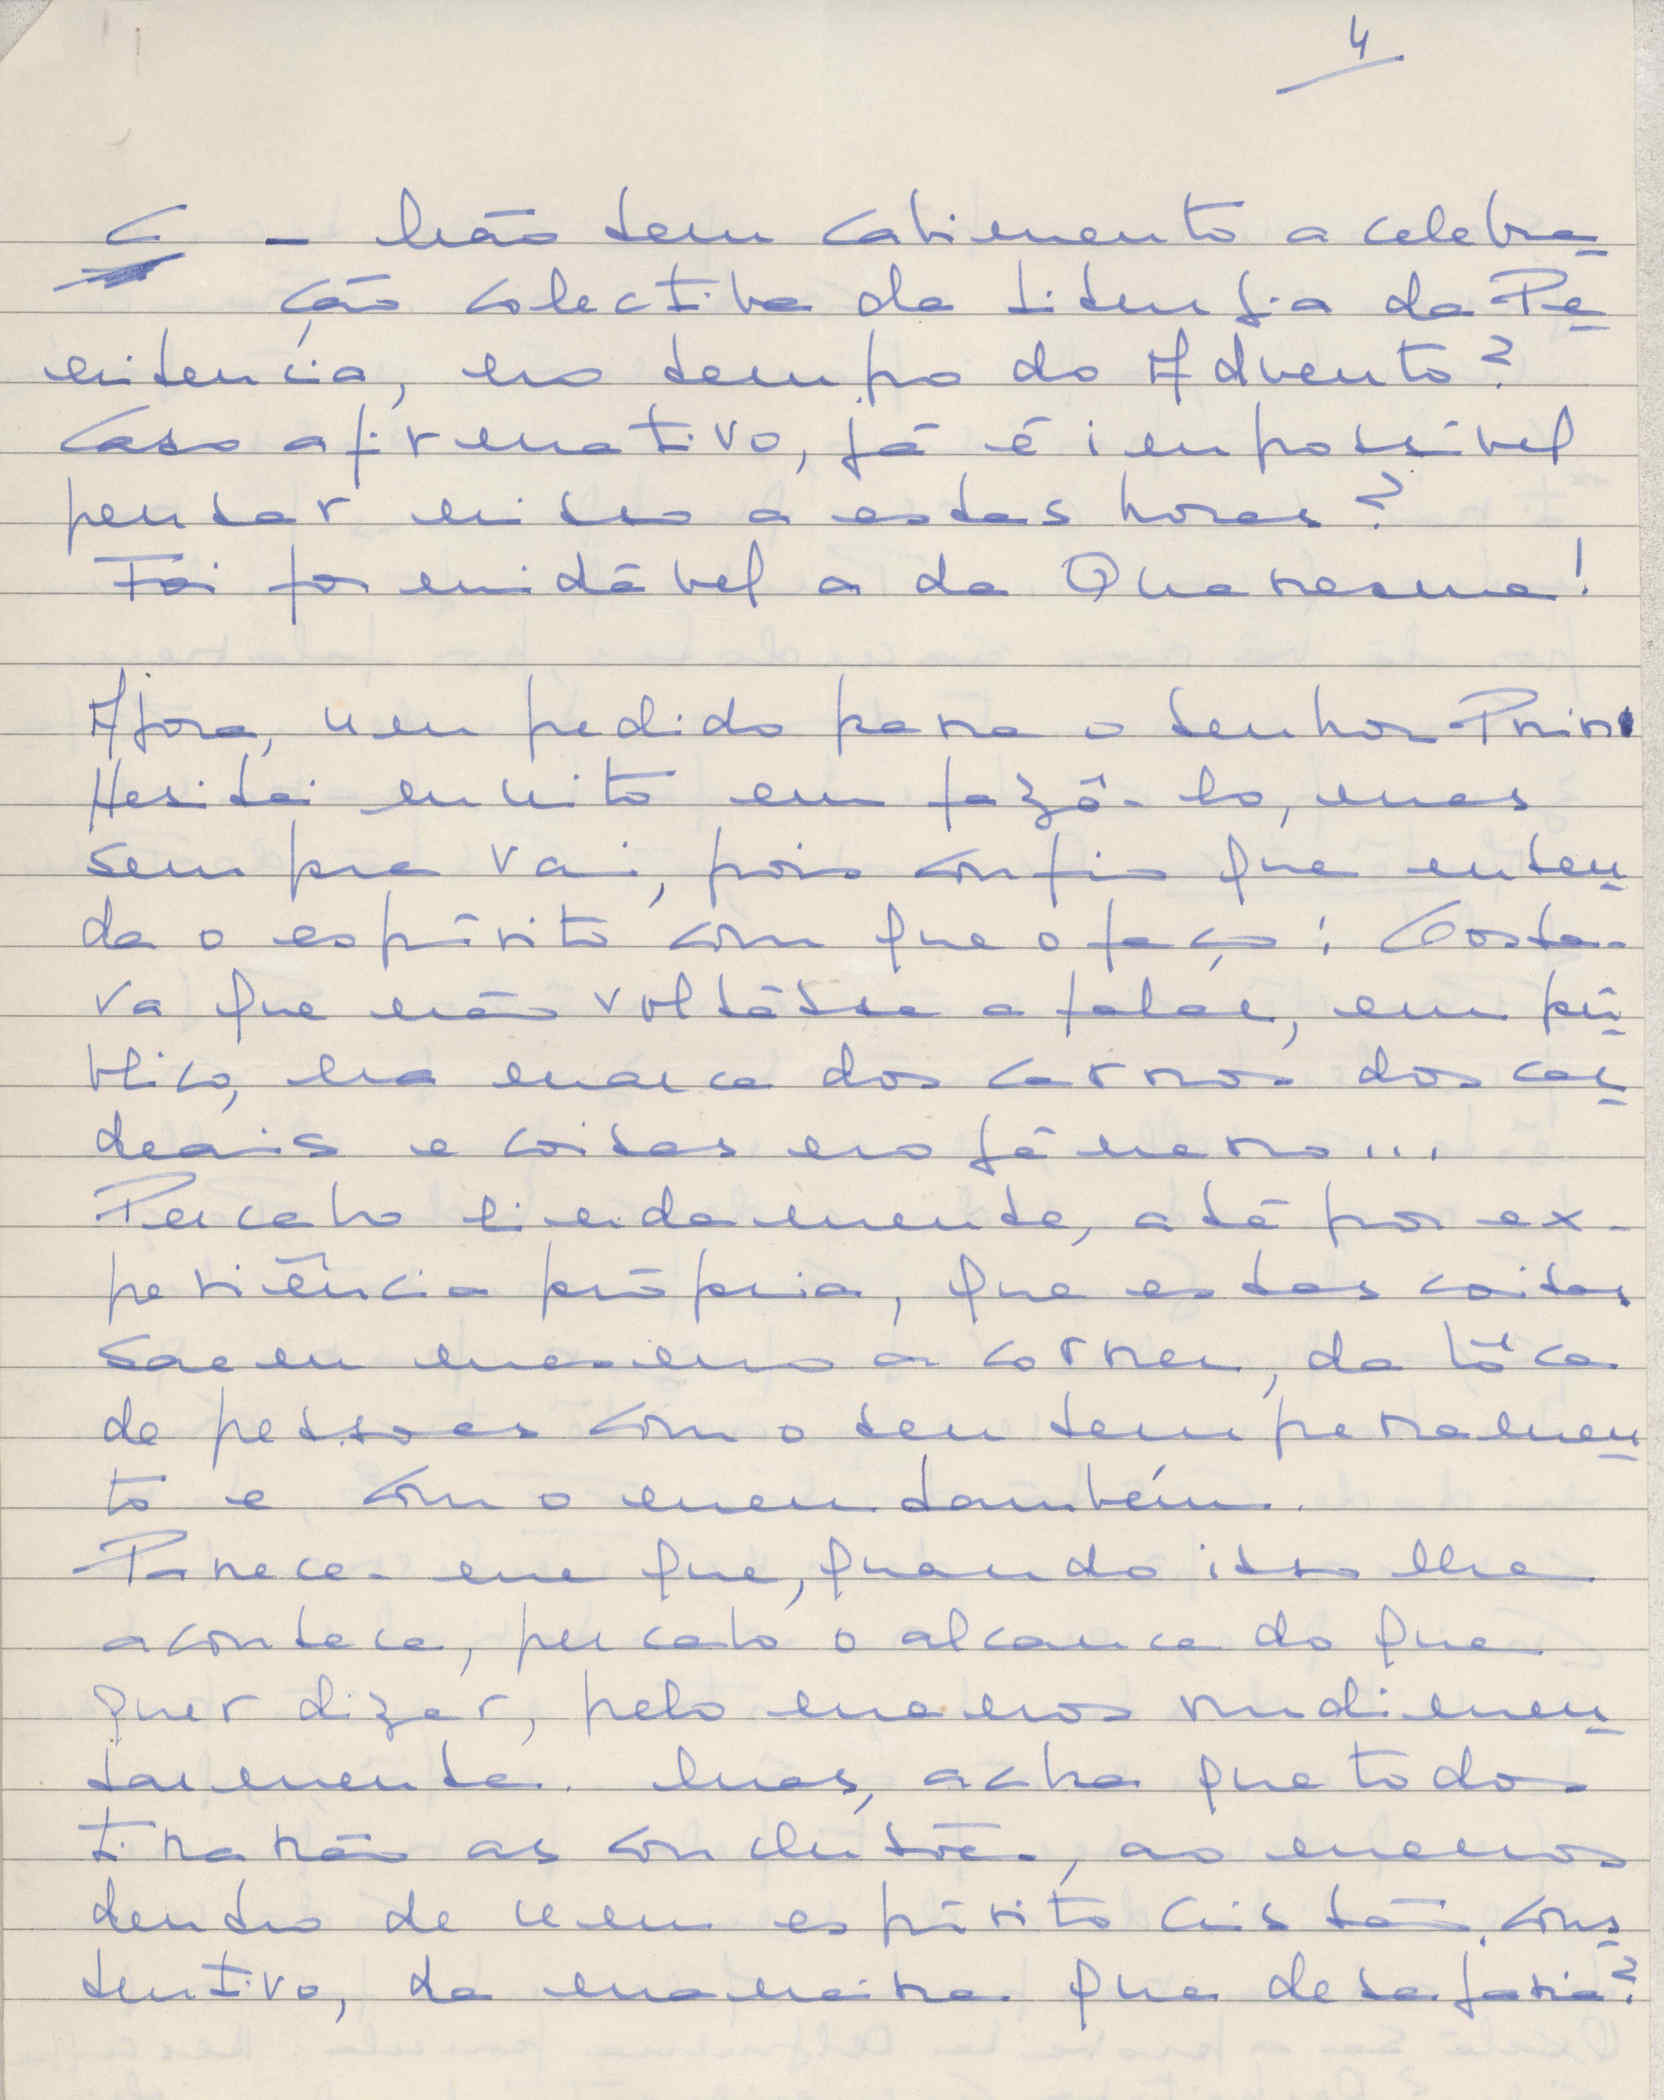 4
C - Não tem cabimento a celebra
ção colectiva da liturgia da Pe
nitencia, no tempo do Advento?
Caso afirmativo, já é impossível
pensar nisso a estas horas?
Foi formidável a da Quaresma!
Agora, um pedido para o senhor Prior
Hesitei muito em fazê-lo, mas
sempre vai, pois confio que enten
da o espírito com que o faço: Gosta-
va que não voltásse a falar, em pú
blico, na marca dos carros dos car
deais e coisas no género...
Percebo lindamente, até por ex-
periência própria, que estas coisas
saem mesmo a correr, da bôca
de pessoas com o seu temperamen
to e com o meu também.
Parece-me que, quando isso lhe
acontece, percebo o alcance do que
quer dizer, pelo menos rudimen
tarmente. Mas, acha que todos
tirarão as conclusões, ao menos
dentro de um espírito cristão, cons
trutivo, da maneira que desejaria?